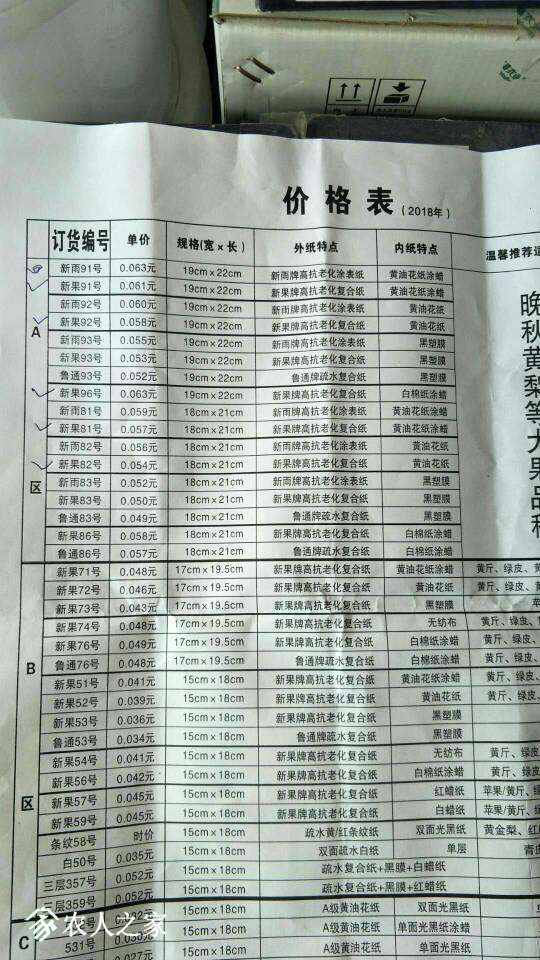 价格表(2018年)
订货编号 单价 规格(宽×长) 外纸特点 内纸特点 温馨推荐
新雨91号 0.063元 19cm×22cm 新雨牌高抗老化涂表纸 黄油花纸涂蜡
新果91号 0.061元 19cm×22cm 新果牌高抗老化复合纸 黄油花纸涂蜡
新雨92号 0.060元 19cm×22cm 新雨牌高抗老化涂表纸 黄油花纸
新果92号 0.058元 19cm×22cm 新果牌高抗老化复合纸 黄油花纸
A
新雨93号 0.055元 19cm×22cm 新雨牌高抗老化涂表纸 黑塑膜
新果93号 0.053元 19cm×22cm 新果牌高抗老化复合纸 黑塑膜
鲁通93号 0.052元 19cm×22cm 鲁通牌疏水复合纸 黑塑膜
新果96号 0.063元 19cm×22cm 新果牌高抗老化复合纸 白棉纸涂蜡
新雨81号 0.059元 18cm×21cm 新雨牌高抗老化涂表纸 黄油花纸涂蜡
新果81号 0.057元 18cm×21cm 新果牌高抗老化复合纸 黄油花纸涂蜡
新雨82号 0.056元 18cm×21cm 新雨牌高抗老化涂表纸 黄油花纸
新果82号 0.054元 18cm×21cm 新果牌高抗老化复合纸 黄油花纸
区
新雨83号 0.052元 18cm×21cm 新雨牌高抗老化涂表纸 黑塑膜
新果83号 0.050元 18cm×21cm 新果牌高抗老化复合纸 黑塑膜
鲁通83号 0.049元 18cm×21cm 鲁通牌疏水复合纸 黑塑膜
新果86号 0.058元 18cm×21cm 新果牌高抗老化复合纸 白棉纸涂蜡
鲁通86号 0.057元 18cm×21cm 鲁通牌疏水复合纸 白棉纸涂蜡
晚秋黄梨等大果品种
新果71号 0.048元 17cm×19.5cm 新果牌高抗老化复合纸 黄油花纸涂蜡 黄斤、绿皮、黄
新果72号 0.046元 17cm×19.5cm 新果牌高抗老化复合纸 黄油花纸 黄斤、绿皮、黄
新果73号 0.043元 17cm×19.5cm 新果牌高抗老化复合纸 黑塑膜
新果74号 0.048元 17cm×19.5cm 新果牌高抗老化复合纸 无纺布 黄斤、绿皮、
新果76号 0.049元 17cm×19.5cm 新果牌高抗老化复合纸 白棉纸涂蜡 黄斤、绿皮、
B
鲁通76号 0.048元 17cm×19.5cm 鲁通牌疏水复合纸 白棉纸涂蜡 黄斤、绿皮、
新果51号 0.041元 15cm×18cm 新果牌高抗老化复合纸 黄油花纸涂蜡 黄斤、绿皮、
新果52号 0.039元 15cm×18cm 新果牌高抗老化复合纸 黄油花纸 黄斤、绿皮、
新果53号 0.036元 15cm×18cm 新果牌高抗老化复合纸 黑塑膜
鲁通53号 0.034元 15cm×18cm 鲁通牌疏水复合纸 黑塑膜
新果54号 0.041元 15cm×18cm 新果牌高抗老化复合纸 无纺布 黄斤、绿皮
新果56号 0.042元 15cm×18cm 新果牌高抗老化复合纸 白棉纸涂蜡 黄斤、绿皮
区
新果57号 0.045元 15cm×18cm 新果牌高抗老化复合纸 红蜡纸 苹果/黄斤、绿
新果59号 0.045元 15cm×18cm 新果牌高抗老化复合纸 白蜡纸 苹果/黄斤、绿
条纹58号 时价 15cm×18cm 疏水黄/红条纹纸 双面光黑纸 黄金梨、红
白50号 0.035元 15cm×18cm 双面疏水白纸 单层 青皮
三层357号 0.052元 15cm×18cm 疏水复合纸+黑膜+白蜡纸
三层359号 0.052元 15cm×18cm 疏水复合纸+黑膜+红蜡纸
15cm×18cm A级黄油花纸 双面光黑纸
C
531号 15cm×18cm A级黄油花纸 单面光黑纸涂蜡
0.027元 15cm×18cm A级黄油花纸 单面光黑纸
农人之家